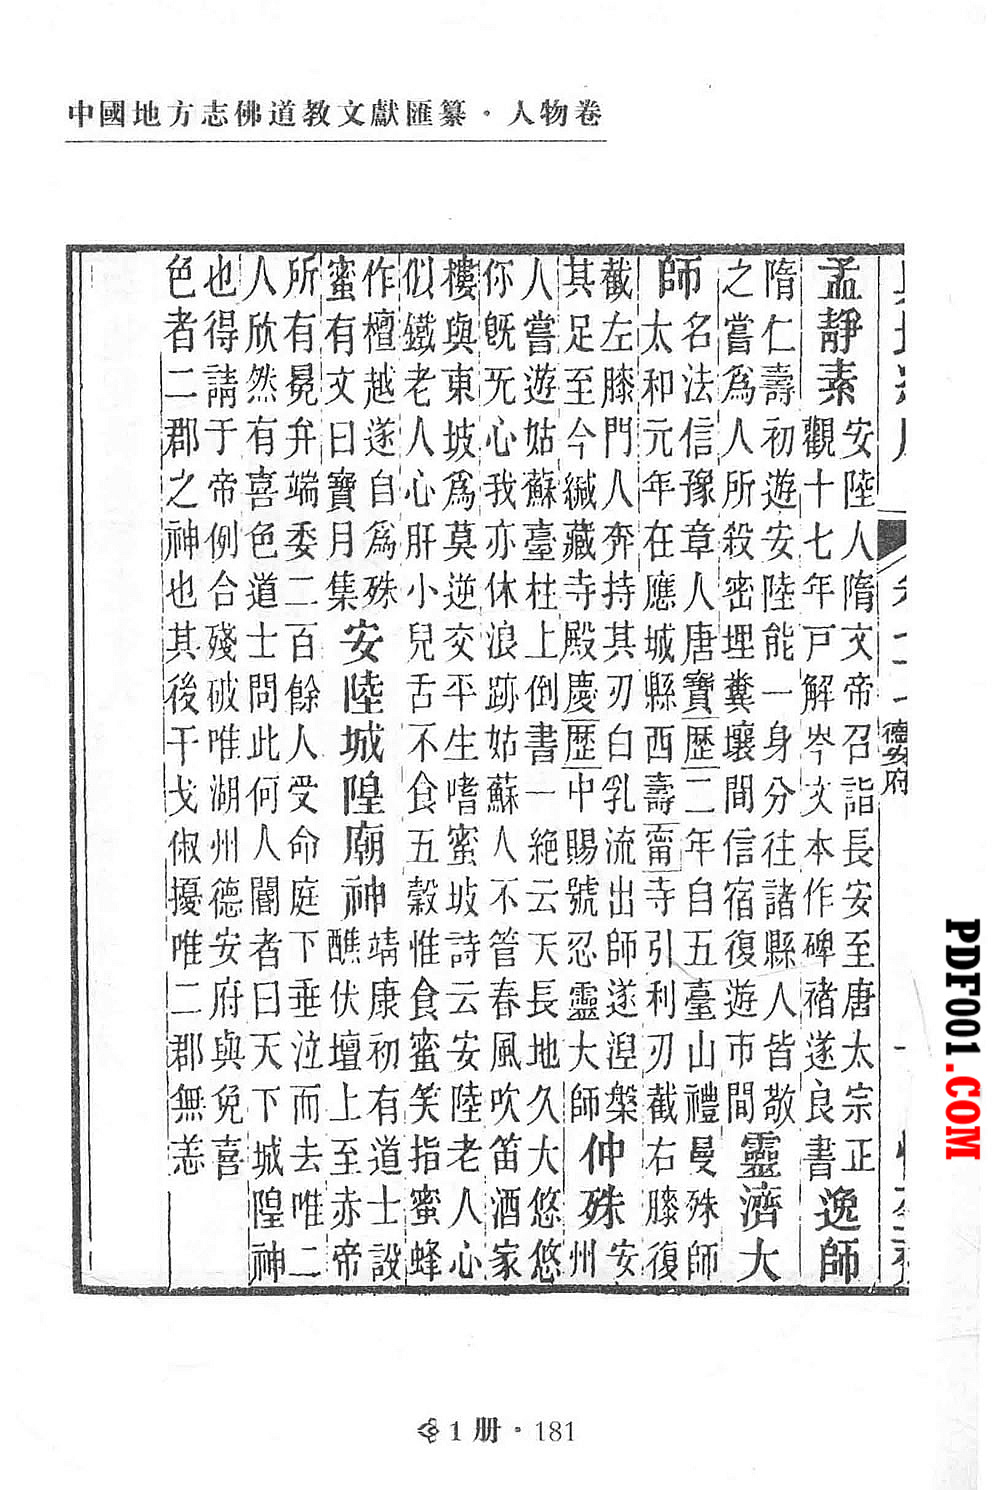 中國地方志佛道教文獻匯纂·人物卷
德安府
孟靜素
安陸人隋文帝召詣長安至唐太宗正
觀十七年尸解岑文本作碑禇遂良書
逸師
隋仁壽初遊安陸能一身分往諸縣人皆敬
之嘗爲人所殺密埋糞壤間信宿復遊市間
靈濟大
師
名法信豫章人唐寶歷二年自五臺山禮曼殊師
太和元年在應城縣西壽甯寺引利刃截右膝復
截左膝門人奔持其刃白乳流出師遂湼槃
其足至今緘藏寺殿慶歷中賜號忍靈大師
仲殊
安
州
人嘗遊姑蘇臺柱上倒書一絶云天長地久大悠悠
你旣旡心我亦休浪跡姑蘇人不管春風吹笛酒家
樓與東坡爲莫逆交平生嗜蜜坡詩云安陸老人心
似鐵老人心肝小兒舌不食五穀惟食蜜笑指蜜蜂
作檀越遂自爲殊
蜜有文曰寶月集
安陸城隍廟神
靖康初有道士設
醮伏壇上至赤帝
所有冕弁端委二百餘人受命庭下垂泣而去唯二
人欣然有喜色道士問此何人閽者曰天下城隍神
也得請于帝例合殘破唯湖州德安府與免喜
色者二郡之神也其後干戈俶擾唯二郡無恙
1 册·181
PDF001.COM